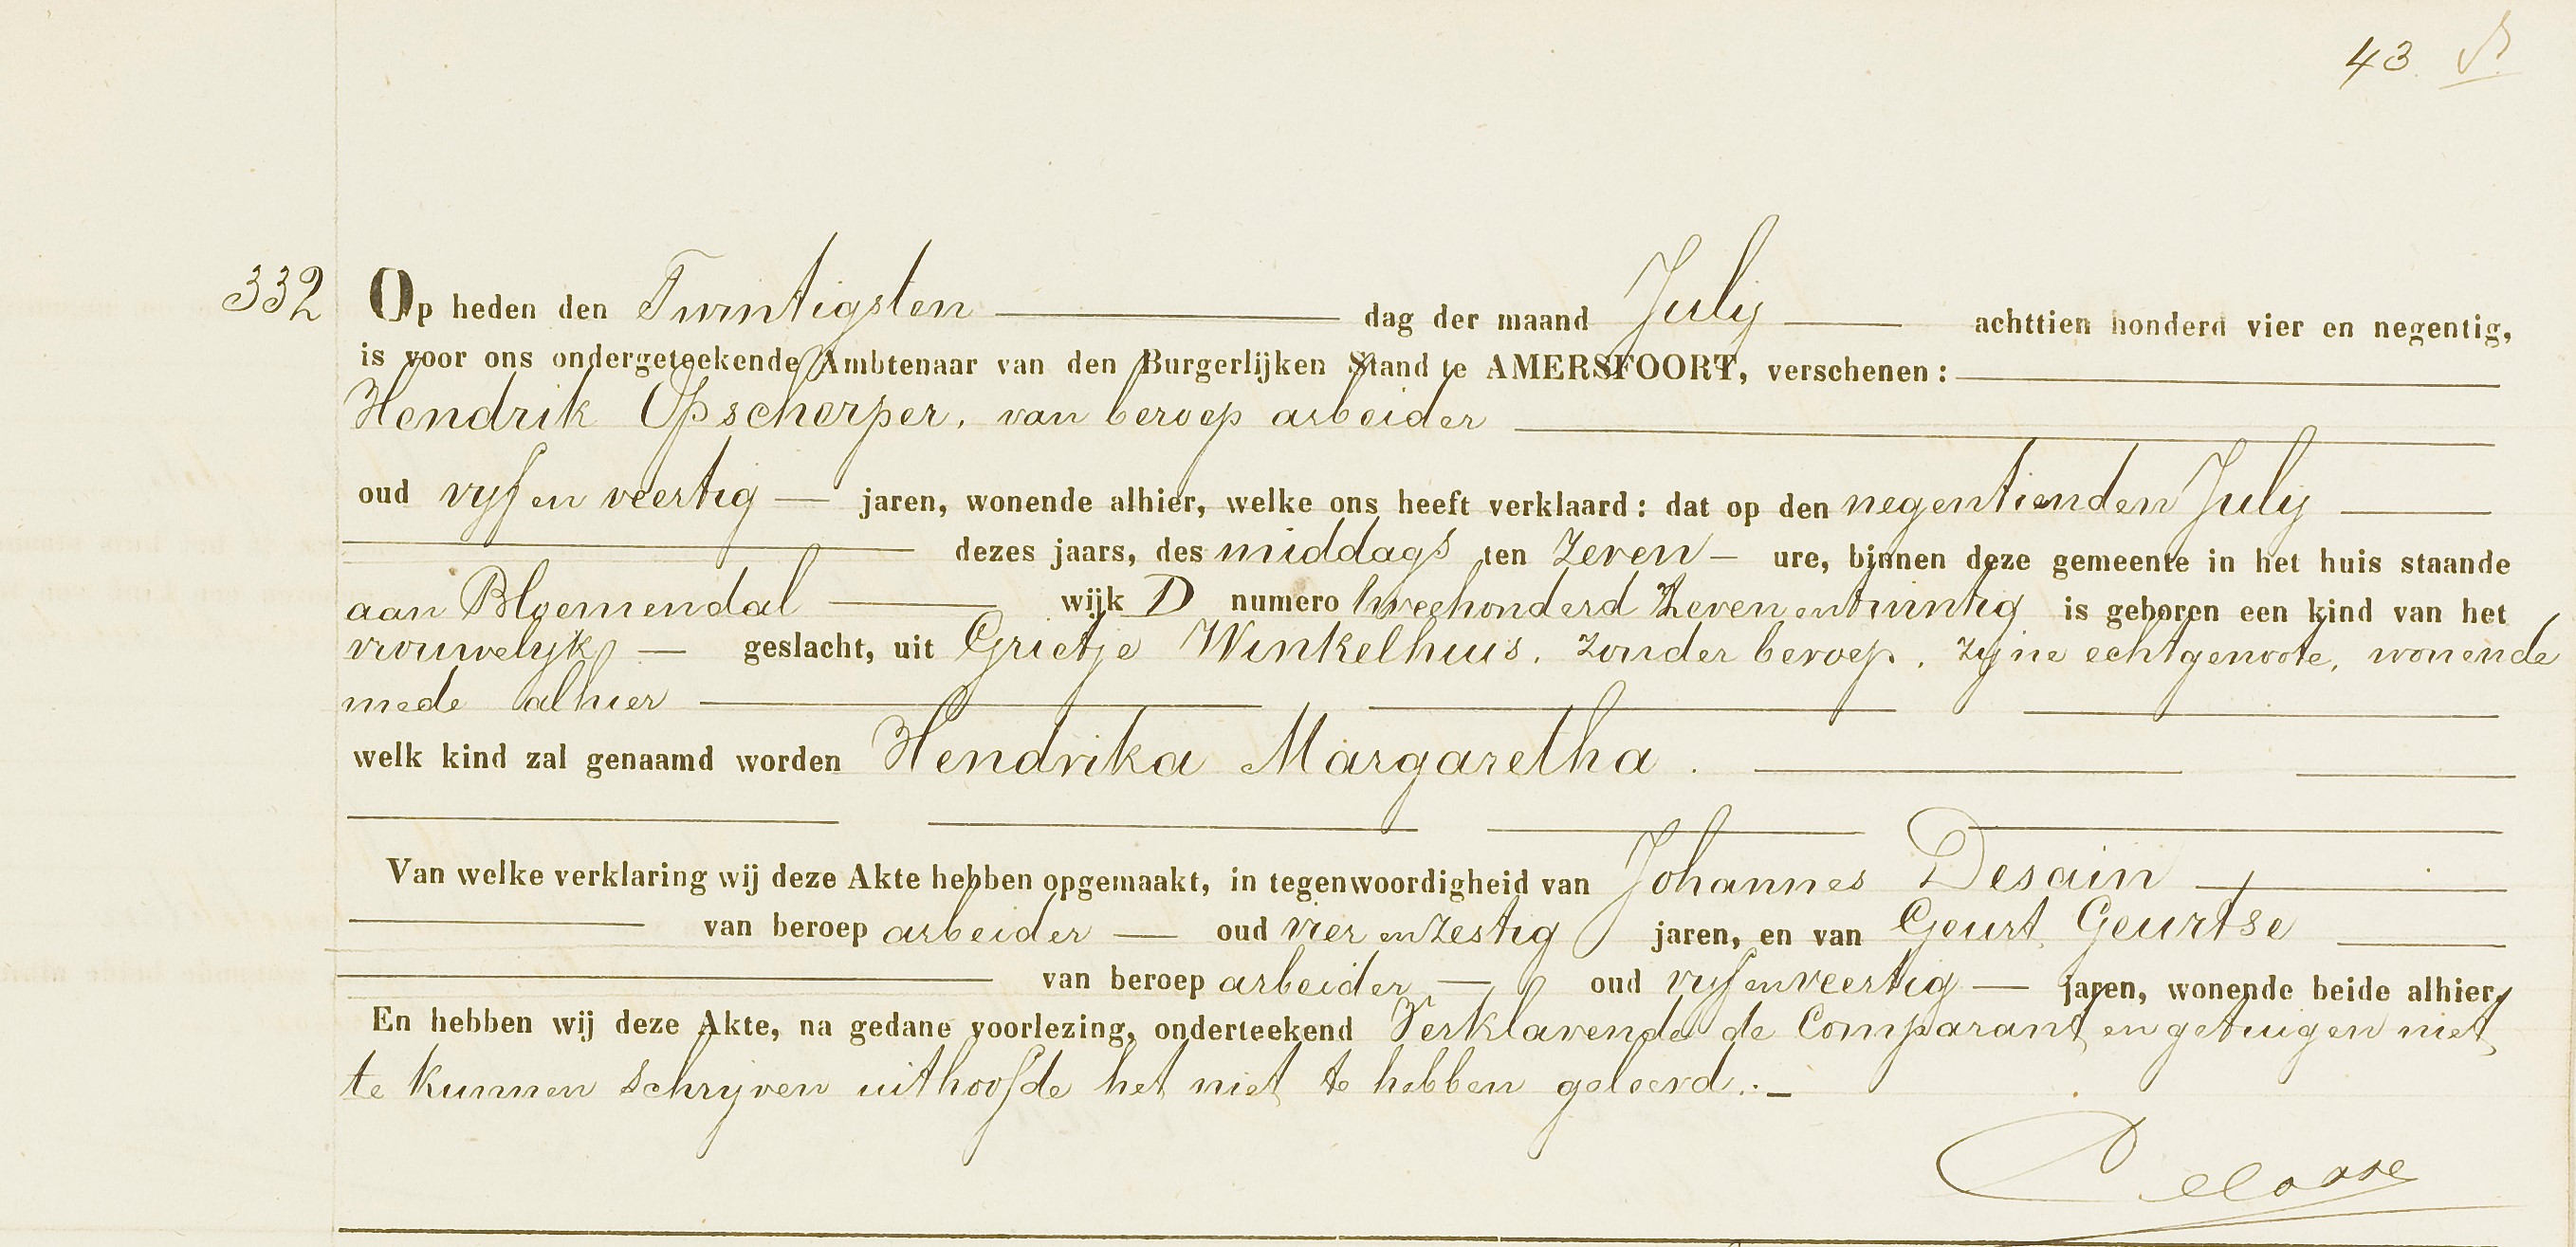 43
332 Op heden den Twintigsten dag der maand July achttien honderd vier en negentig,
is voor ons ondergeteekende Ambtenaar van den Burgerlijken Stand te AMERSFOORT, verschenen :
Hendrik Opscherper, van beroep arbeider
oud vyf en veertig jaren, wonende alhier, welke ons heeft verklaard : dat op den negentienden July
dezes jaars, des middags ten zeven ure, binnen deze gemeente in het huis staande
aan Bloemendal wijk D numero tweehonderd zevenentwintig is geboren een kind van het
vrouwelyk geslacht, uit Grietje Winkelhuis, zonder beroep, zyne echtgenoote, wonende
mede alhier
welk kind zal genaamd worden Hendrika Margaretha.
Van welke verklaring wij deze Akte hebben opgemaakt, in tegenwoordigheid van Johannes Desain
van beroep arbeider oud vier en zestig jaren, en van Geurt Geurtse
van beroep arbeider oud vyf en veertig jaren, wonende beide alhier,
En hebben wij deze Akte, na gedane voorlezing, onderteekend Verklarende de Comparant en getuigen niet
te kunnen schryven uithoofde het niet te hebben geleerd.